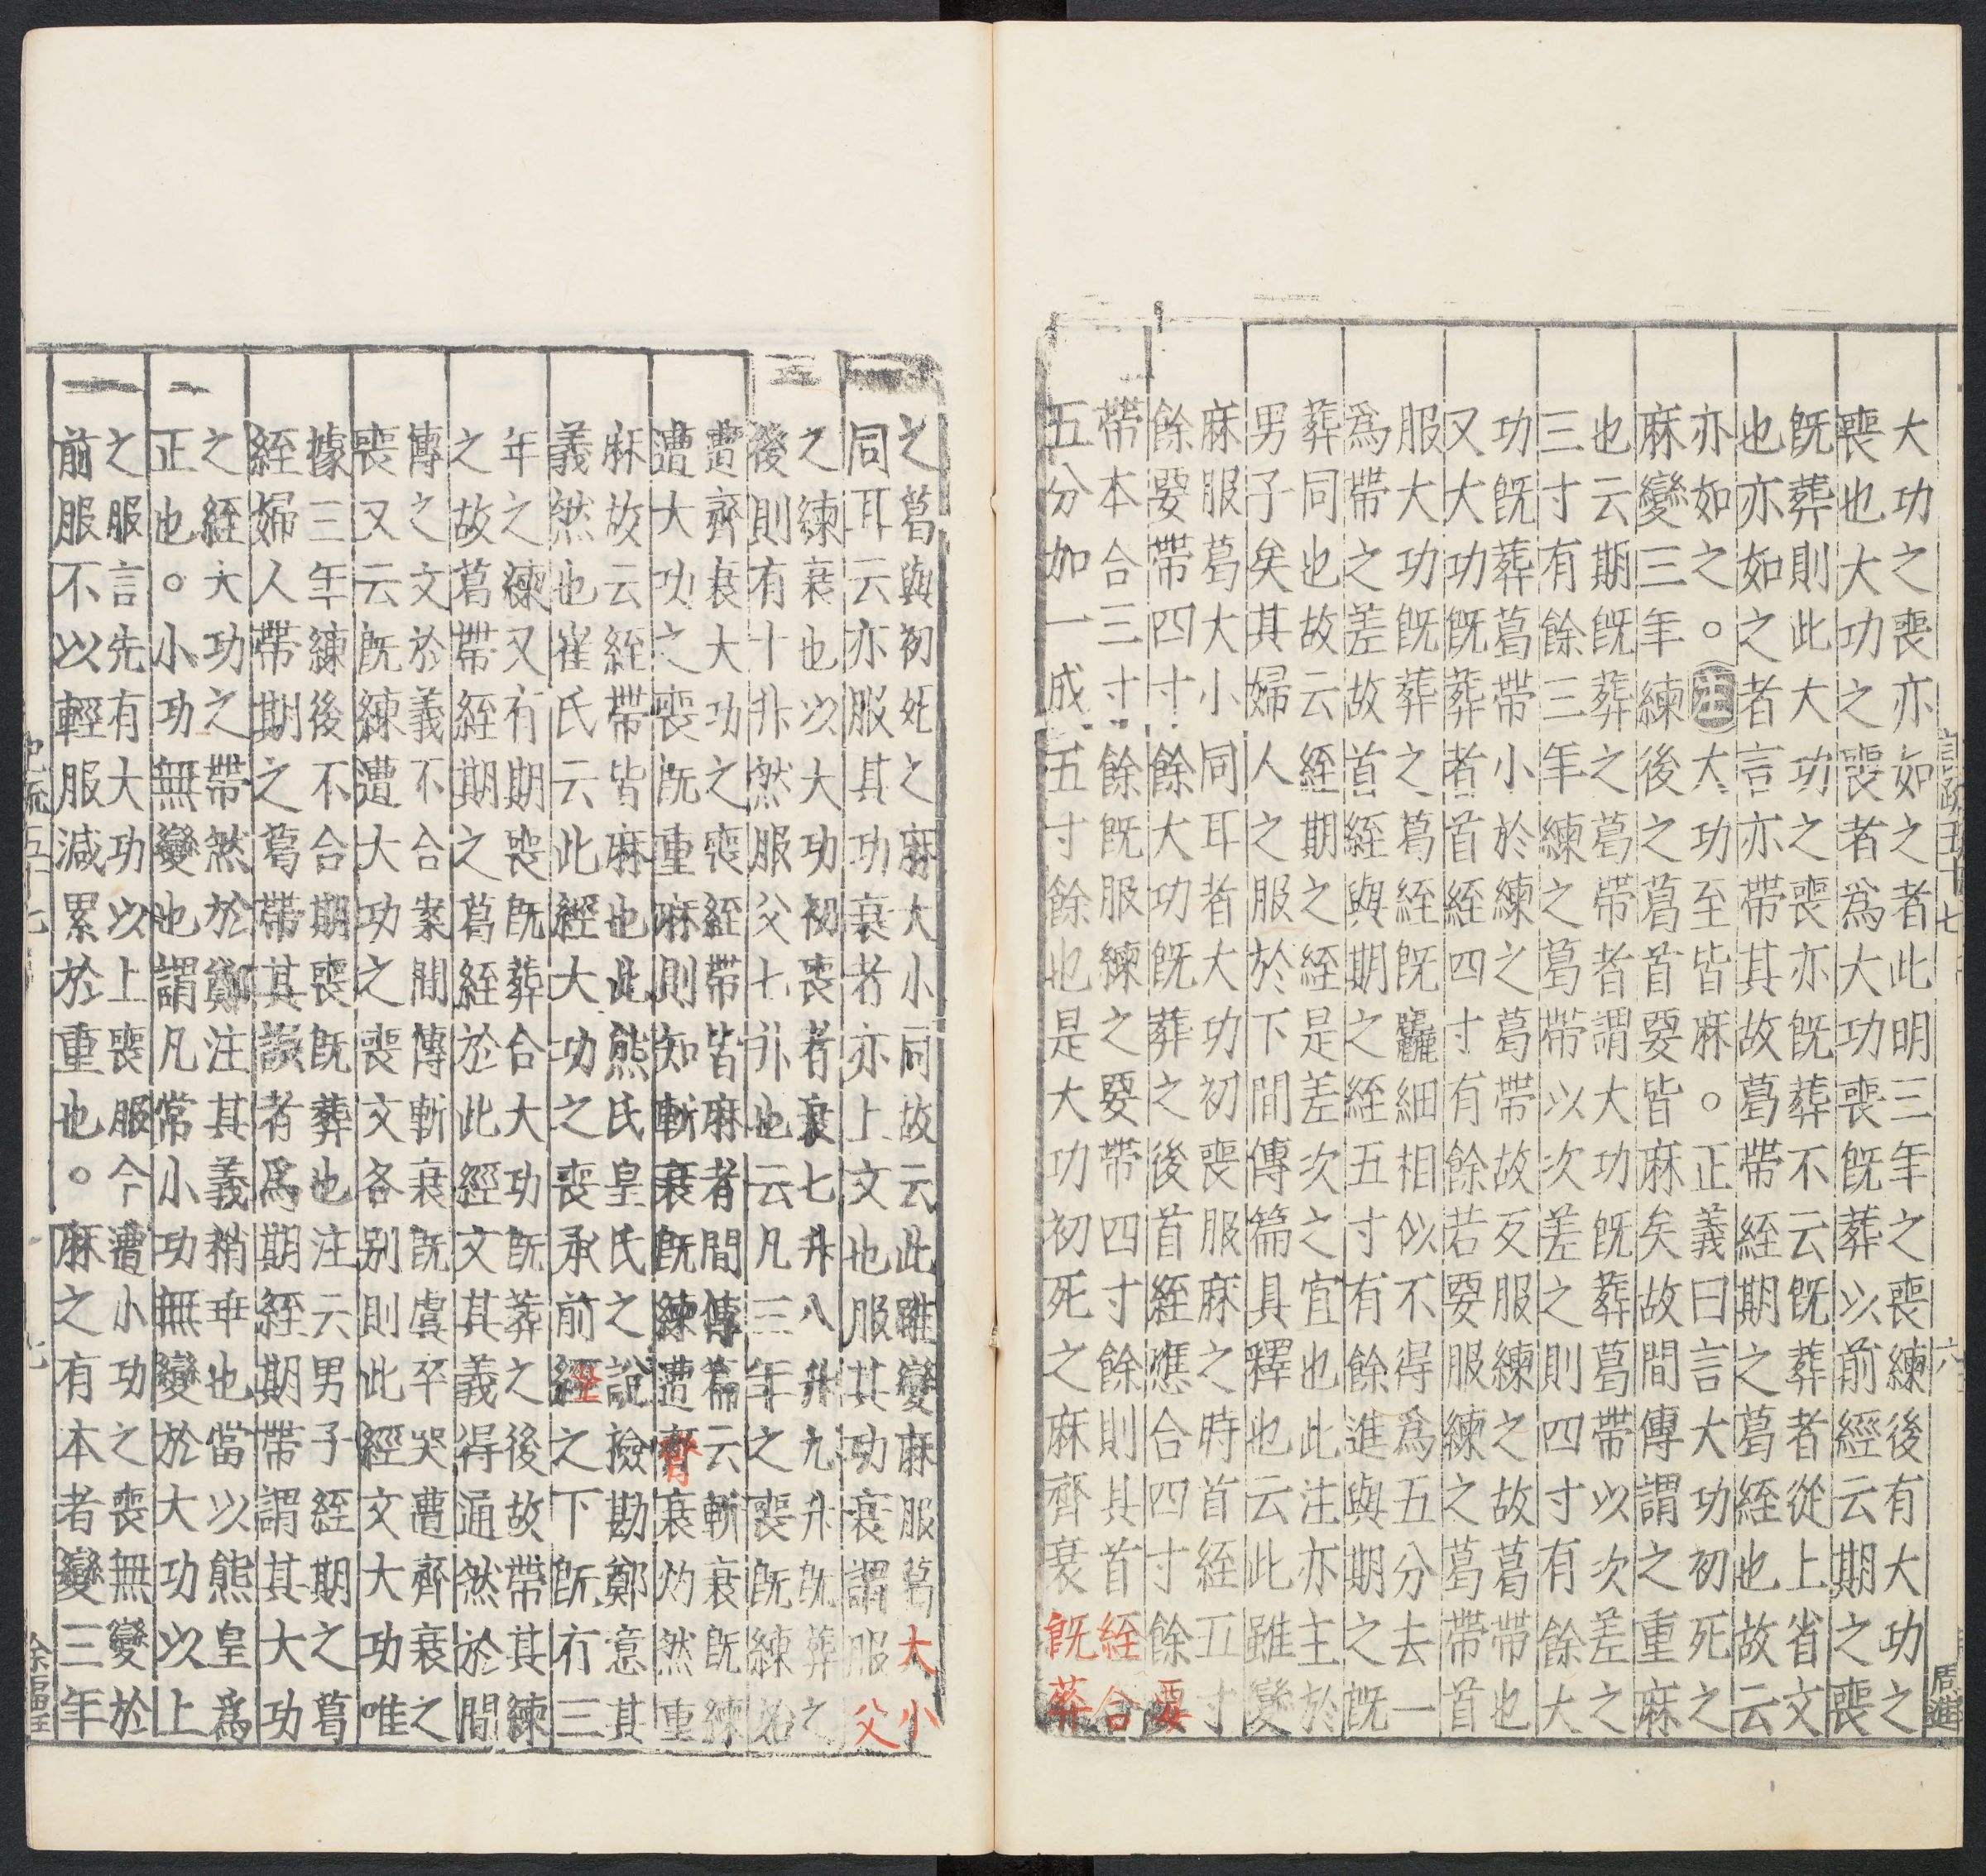 大功之喪亦如之者此明三年之喪練後有大功之
喪也大功之喪者爲大功喪既葬以前經云期之喪
既葬則此大功之喪亦既葬不云既葬者從上省文
也亦如之者言亦帶其故葛帶絰期之葛絰也故云
亦如之。注大功至皆麻。正義曰言大功初死之
麻變三年練後之葛首要皆麻矣故間傳謂之重麻
也云期既葬之葛帶者謂大功既葬葛帶以次差之
三寸有餘三年練之葛帶以次差之則四寸有餘大
功既葬葛帶小於練之葛帶故反服練之故葛帶也
又大功既葬者首絰四寸有餘若要服練之葛帶首
服大功既葬之葛絰既麤細相似不得爲五分去一
爲帶之差故首絰與期之絰五寸有餘進與期之既
葬同也故云絰期之絰是差次之宜也此注亦主於
男子矣其婦人之服於下間傳篇具釋也云此雖變
麻服葛大小同耳者大功初喪服麻之時首絰五寸
餘要帶四寸餘大功既葬之後首絰應合四寸餘要
帶本合三寸餘既服練之要帶四寸餘則其首絰合
五分加一成五寸餘也是大功初死之麻齊衰既葬
之葛與初死之麻大小同故云此雖變麻服葛大小
同耳云亦服其功衰者亦上文也服其功衰謂服父
之練衰也以大功初喪者衰七升八升九升既葬之
後則有十升然服父七升也云凡三年之喪既練始
遭齊衰大功之喪絰帶皆麻者間傳篇云斬衰既練
遭大功之喪既重麻則知斬衰既練遭齊衰灼然重
麻故云絰帶皆麻也此熊氏皇氏之說檢勘鄭意其
義然也崔氏云此經大功之喪承前經之下既有三
年之練又有期喪既葬合大功既葬之後故帶其練
之故葛帶絰期之葛絰於此經文其義得通然於間
傳之文於義不合案間傳斬衰既虞卒哭遭齊衰之
喪又云既練遭大功之喪文各別則此經文大功唯
據三年練後不合期喪既葬也注云男子絰期之葛
絰婦人帶期之葛帶其誤者爲期絰期帶謂其大功
之絰大功之帶然於鄭注其義稍乖也當以熊皇爲
正也。小功無變也謂凡常小功無變於大功以上
之服言先有大功以上喪服今遭小功之喪無變於
前服不以輕服減累於重也。麻之有本者變三年